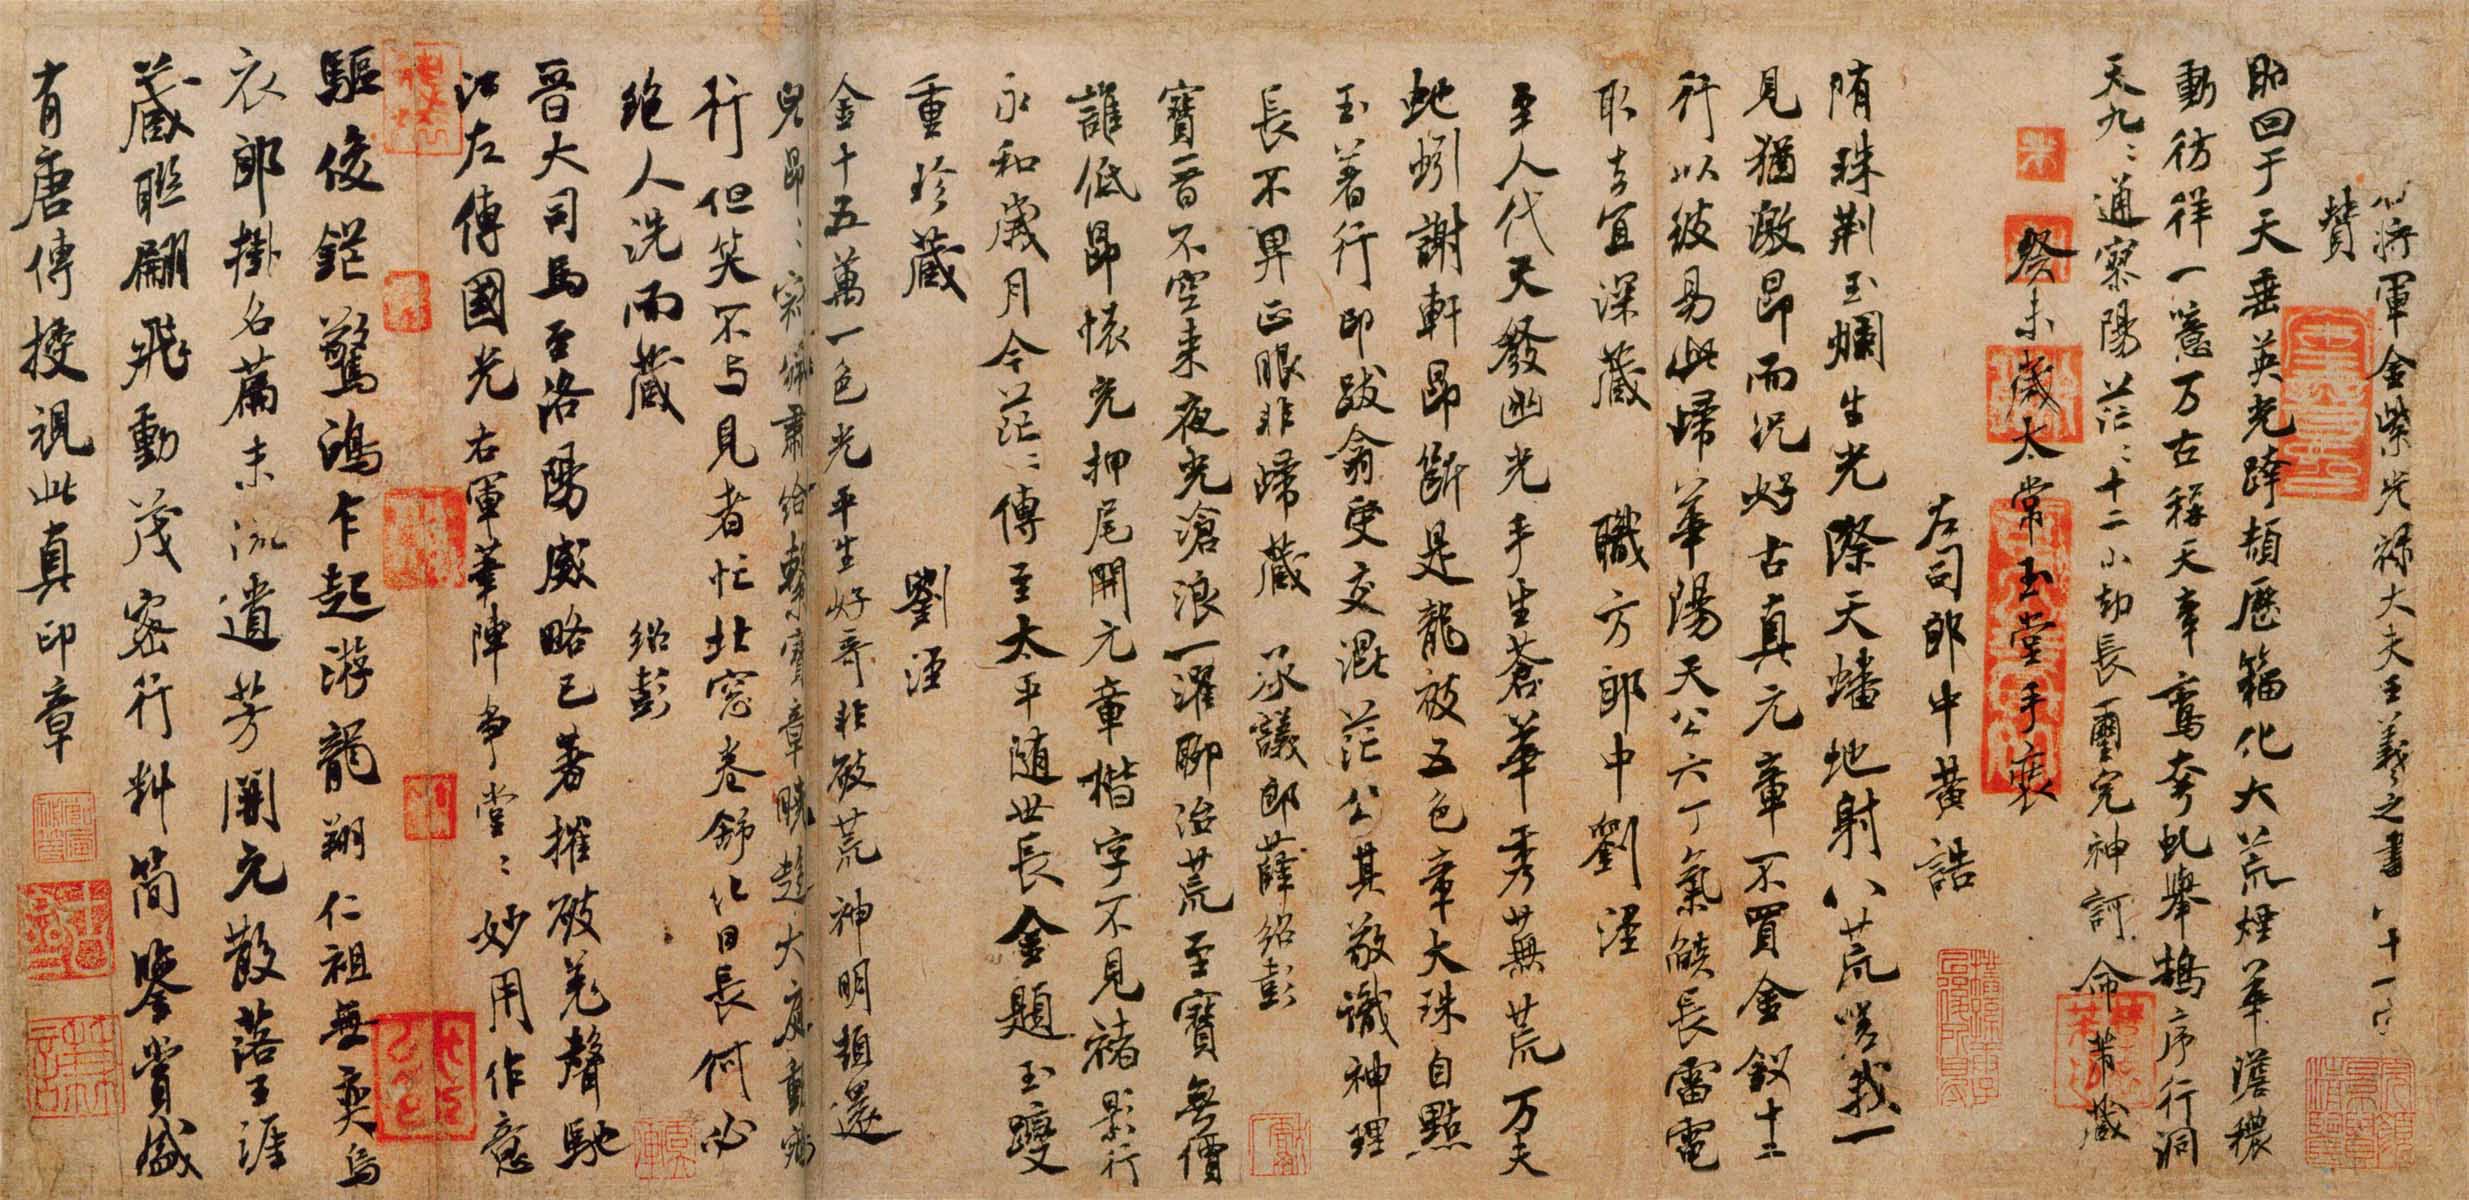 右將軍金紫光祿大夫王羲之書 八十一字
贊
昭回于天垂英光跨頡歷籀化大荒煙華澹穠
動彷徉一噫万古稱天章鸞夸虬舉鵠序行洞
天九〻通寥陽茫〻十二小劫長璽完神訶命芾藏
癸未歲太常玉堂手裝
左司郎中黃誥
隋珠荆玉爛生光際天蟠地射八荒嗟我一
見猶激昂而況好古真元章不買金釵十二
行以彼易此歸華陽天公六丁氣燄長雷電
取去宜深藏 職方郎中劉涇
至人代天發幽光手生蒼華秀蕪荒万夫
虵蚓謝軒昂斷是龍被五色章大珠自點
玉著行印跋翕受交混茫公其敬識神理
長不畀正眼非歸藏 承議郎薛紹彭
寶晉不空來夜光滄浪一濯聊治荒至寶無價
誰低昂懷充押尾開元章楷字不見褚影行
永和歲月今茫〻傳至太平隨世長金題玉躞
重珍藏 劉涇
金十五萬一色光平生好奇非破荒神明頓還
皃昂〻綈肅給繫寶章曉趍大慶動鏘
行但笑不与見者忙北窓卷舒化日長何必
絶人洗而藏 紹彭
晉大司馬至洛陽威略已著摧破羌聲馳
江左傳國光右軍筆陣爭堂〻妙用作意
驅俊鋩驚鴻乍起游龍翔仁祖無奕烏
衣郎掛名篇末流遺芳開元散落王涯
藏聮翩飛動茂密行料簡鑒賞盛
有唐傳授視此真印章